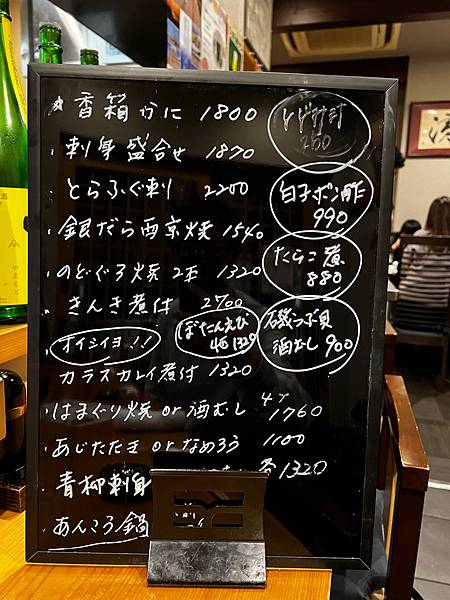 香箱かに 1800
刺身盛合せ 1870
とらふぐ刺 2200
銀だら西京焼 1540
のどぐろ焼 2本 1320
きんき煮付 2700
オイシイヨ!!
カラスカレイ煮付 1320
はまぐり焼 or 酒むし 4ヶ 1760
あじたたき or なめろう 1100
青柳刺身 1320
あんこう鍋
250
白子ポン酢
990
たらこ煮
880
ぼたんえび
4尾 1320
磯つぶ貝
酒むし 900